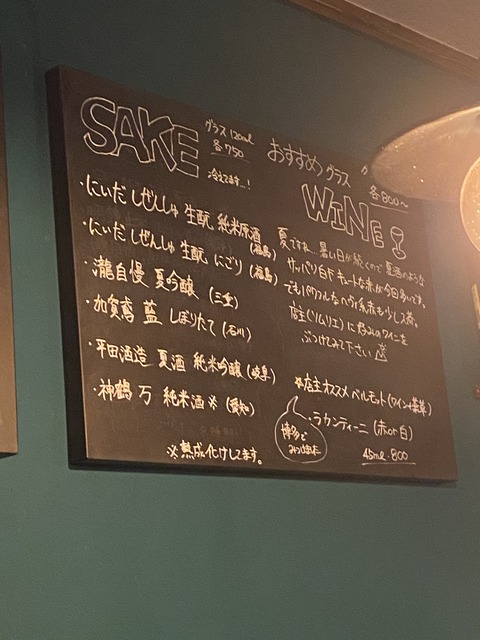 SAKE
グラス 120ml
各750
冷えてます…!
・にいだしぜんしゅ 生酛 純米原酒(福島)
・にいだしぜんしゅ 生酛 にごり(福島)
・瀧自慢 夏吟醸(三重)
・加賀鳶 藍 しぼりたて(石川)
・平田酒造 夏酒 純米吟醸(岐阜)
・神鶴 万 純米酒※(愛知)
※熟成化けしてます。
おすすめグラス
各800〜
WINE!
夏ですネ…暑い日が続くので夏酒のような
サッパリ白やキュートな赤が今日多いです。
でもパワフルなヘヴィ系赤も少し有。
店主(ソムリエ)に好みのワインを
ぶつけてみて下さい
★店主オススメ ベルモット(ワイン+薬草)
・ラカンティーニ(赤or白)
45ml・800
博多で
みつけました